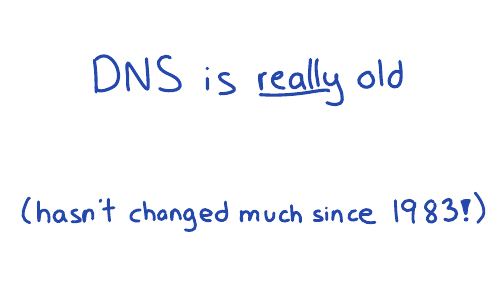 DNS is really old
(hasn't changed much since 1983!)